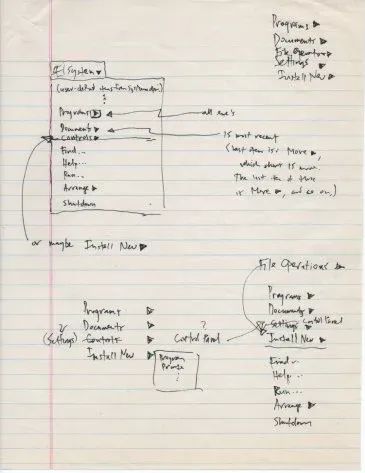 Programs ▶
Documents ▶
File Operations ▶
Settings ▶
Install New ▶
System ▾
(user-defined items from system menu)
Programs ▶
all exe's
Documents ▶
Controls ▶
Find...
Help...
Run...
Arrange ▶
Shutdown
15 most recent
(last item is: More ▶,
which shows 15 more.
The last item of those
is More ▶, and so on.)
or maybe Install New ▶
File Operations ▶
Programs ▶
Documents ▶
? (Settings) Controls ▶
Install New ▶
Program
?
Control Panel
Programs ▶
Documents ▶
Settings Control Panel
Install New ▶
Find...
Help...
Run...
Arrange ▶
Shutdown